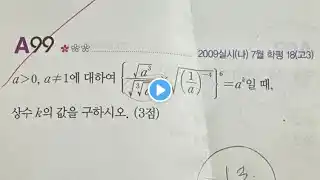 A99
2009실시(나) 7월 학평 18(고3)
a>0, a≠1에 대하여 { √a³ / √∛ √(1/a)⁻⁴ }⁶ = aᵏ일 때,
상수 k의 값을 구하시오. (3점)
13